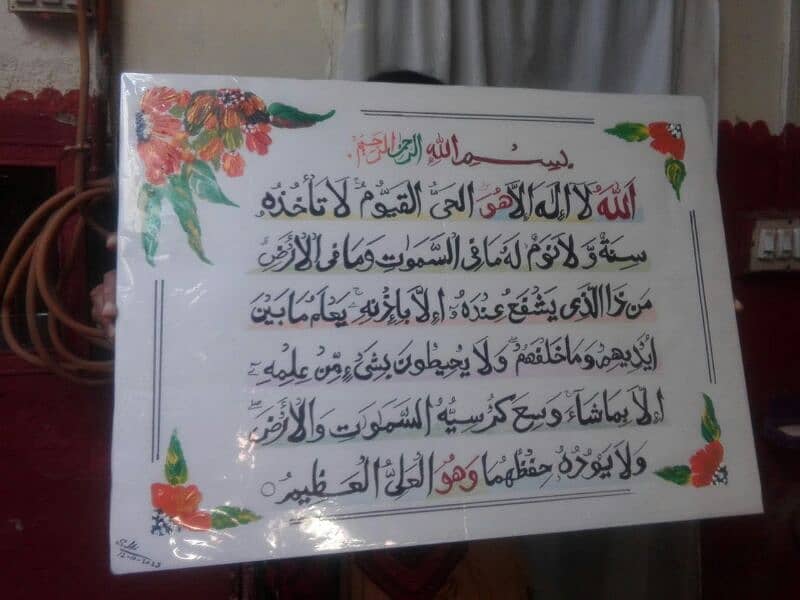 بسم الله الرحمن الرحيم
اَللّٰهُ لَا اِلٰهَ اِلَّا هُوَ الحَیُّ القَیُّومُ لَا تَأخُذُهُ
سِنَةٌ وَّلَا نَوْمٌ لَهُ مَا فِی السَّمٰوٰتِ وَمَا فِی الْاَرْضِ
مَن ذَا الَّذِی یَشْفَعُ عِنْدَهُ اِلَّا بِاِذْنِهٖ یَعْلَمُ مَا بَیْنَ
اَیْدِیهِم وَمَا خَلْفَهُم وَلَا یُحِیطُونَ بِشَیْءٍ مِّنْ عِلْمِهٖ
اِلَّا بِمَا شَآءَ وَسِعَ کُرْسِیُّهُ السَّمٰوٰتِ وَالْاَرْضَ
وَلَا یَـُٔودُهُ حِفْظُهُمَا وَهُوَ العَلِیُّ العَظِیمُ